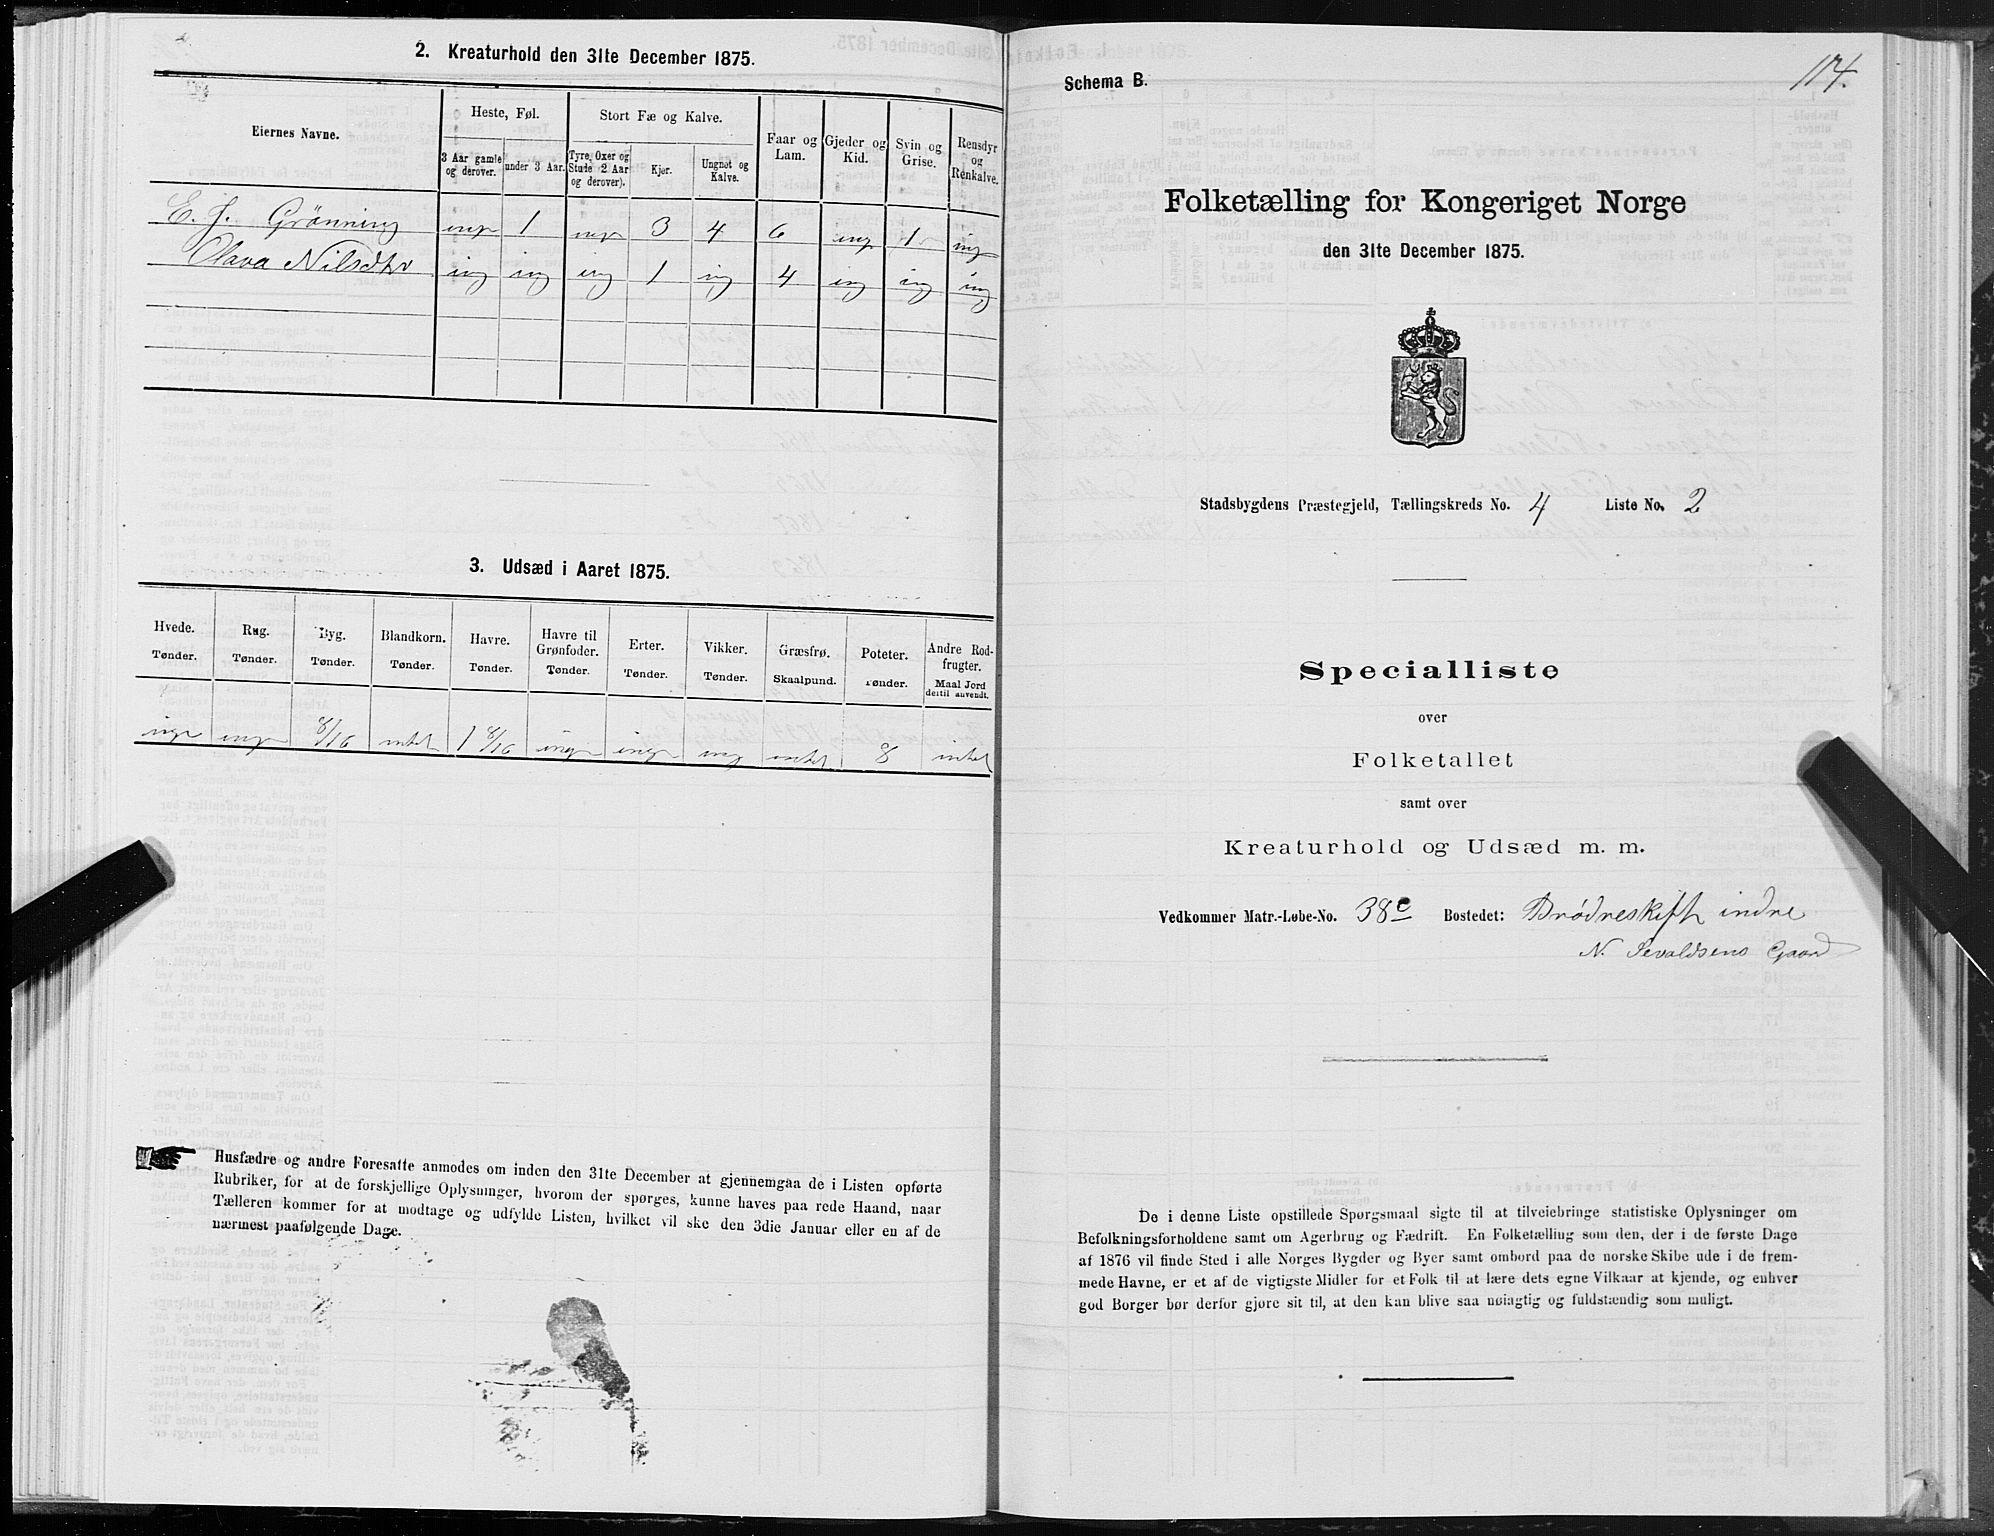 2. Kreaturhold den 31te December 1875.
Eiernes Navne.
Heste, Føl.
Stort Fæ og Kalve.
Faar og Lam.
Gjeder og Kid.
Svin og Grise.
Rensdyr og Renkalve.
3 Aar gamle og derover.
under 3 Aar.
Tyre, Oxer og Stude 2 Aar og derover).
Kjer.
Ungnøt og Kalve.
E. J. Grönning inge 1 inge 3 4 6 inge 1 ing
Olava Nilsdtr ing ing ing 1 ing 4 ing ing ing
3. Udsæd i Aaret 1875.
Hvede. Rug. Byg. Blandkorn. Havre. Havre til Grønfoder. Erter. Vikker. Græsfrø. Poteter. Andre Rodfrugter.
Tønder. Tønder. Tønder. Tønder. Tønder. Tønder. Tønder. Tønder. Skaalpund. Tønder. Maal Jord dertil anvendt.
inge inge 8/16 intet 1 8/16 inge inge ing intet 8 intet
Husfædre og andre Foresatte anmodes om inden den 31te December at gjennemgaa de i Listen opførte
Rubriker, for at de forskjellige Oplysninger, hvorom der spørges, kunne haves paa rede Haand, naar
Tælleren kommer for at modtage og udfylde Listen, hvilket vil ske den 3die Januar eller en af de
nærmest paafølgende Dage.
114.
Schema B.
Folketælling for Kongeriget Norge
den 31te December 1875.
Stadsbygdens Præstegjeld, Tællingskreds No. 4 Liste No. 2
Specialliste
over
Folketallet
samt over
Kreaturhold og Udsæd m. m.
Vedkommer Matr.-Løbe-No. 38e Bostedet: Brödreskift indre
N. Sevaldsens Gaard
De i denne Liste opstillede Spørgsmaal sigte til at tilveiebringe statistiske Oplysninger om
Befolkningsforholdene samt om Agerbrug og Fædrift. En Folketælling som den, der i de første Dage
af 1876 vil finde Sted i alle Norges Bygder og Byer samt ombord paa de norske Skibe ude i de frem-
mede Havne, er et af de vigtigste Midler for et Folk til at lære dets egne Vilkaar at kjende, og enhver
god Borger bør derfor gjøre sit til, at den kan blive saa nøiagtig og fuldstændig som muligt.